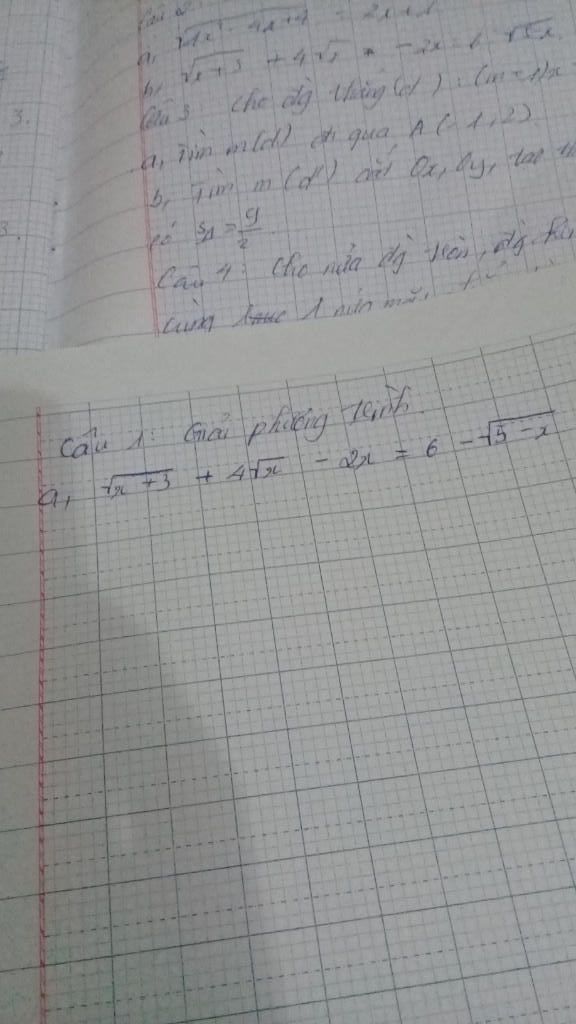 Câu 2
a, √4x² - 4x+4 = 2x+1
b, √x+3 + 4√x - 2x = 6 - √5-x
Câu 3: Cho đg thẳng (d): (m-1)x
a, Tìm m (d) đi qua A(-1,2)
b, Tìm m (d) cắt Ox, Oy, tạo
có S∆ = 9/2
Câu 4: Cho nửa đg tròn, đg
cùng 1 nửa
3.
3.
Câu 1: Giải phương trình
a, √x+3 + 4√x - 2x = 6 - √5-x